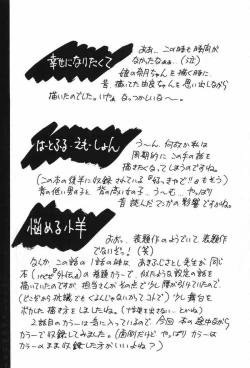 幸せになりたくて
ああ…この時も時間が
なかったなぁぁ…(泣)
娘の
ちゃんを描く時に
昔、描いてた由良ちゃんを思い出しながら
描いたのでした。いやぁ なつかしいなー。
はーとふる・えも・しょん
うーん、何故か私は
周期的にこの手の話を
描きたくなってしまうのですね。
(この本の後半に収録されている
もそう)
背の低い男の子と背の高い女の子…うーむ、やっぱり
昔読んだマンガの影響ですかね。
悩める小羊
おおっ、表題作のようでいて表題作
でないぞっ!(笑)
なんかこの話の1話の時は、あきふじさとし先生が同じ
本
の巻頭カラーで、似たような設定の話を
描いていたのですが、担当さんがその点で少し腰が引けていたので、
(どこかから抗議でもくるんじゃないかってコトで)少し舞台を
ボカした描き方をしましたね。(今は何も出ない…とか)
2話目のカラーは気に入っているので、今回本の途中ながら
カラーで収録してみました。(面倒だけど やっぱりカラーは
カラーのまま収録した方がいいよね?)